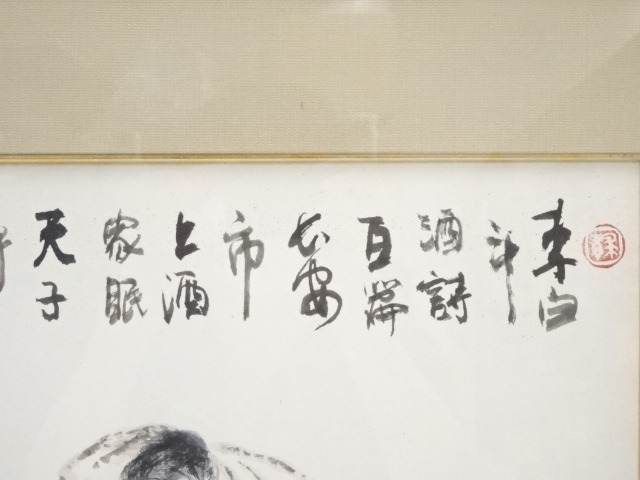 李白
斗
酒詩
百篇
长安
市
上酒
家眠
天子